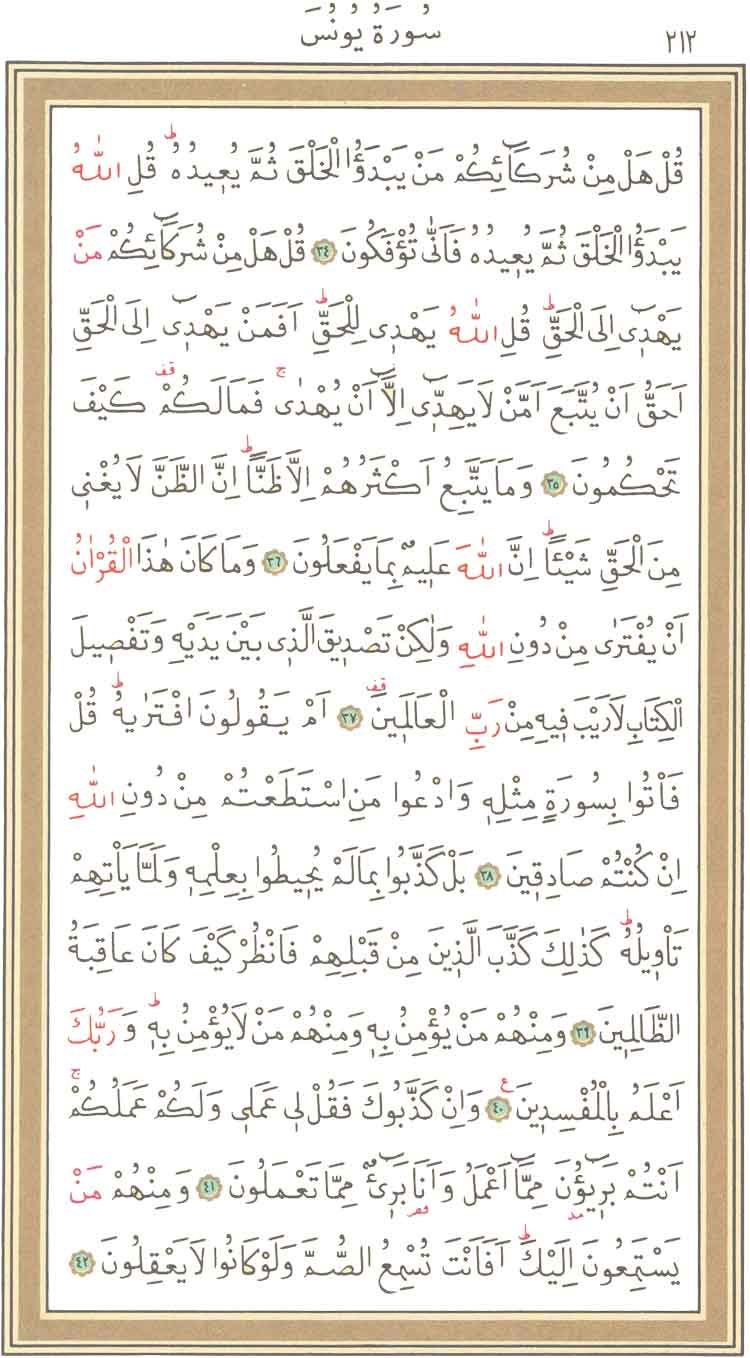 سُورَةُ يُونُسَ ٢١٢
قُلْ هَلْ مِنْ شُرَكَٓائِكُمْ مَنْ يَبْدَؤُا الْخَلْقَ ثُمَّ يُعٖيدُهُۜ قُلِ اللّٰهُ
يَبْدَؤُا الْخَلْقَ ثُمَّ يُعٖيدُهُ فَاَنّٰى تُؤْفَكُونَ ﴿٣٤﴾ قُلْ هَلْ مِنْ شُرَكَٓائِكُمْ مَنْ
يَهْدٖٓى اِلَى الْحَقِّۜ قُلِ اللّٰهُ يَهْدٖى لِلْحَقِّۜ اَفَمَنْ يَهْدٖٓى اِلَى الْحَقِّ
اَحَقُّ اَنْ يُتَّبَعَ اَمَّنْ لَا يَهِدّٖٓى اِلَّٓا اَنْ يُهْدٰىۚ فَمَا لَكُمْ۠ كَيْفَ
تَحْكُمُونَ ﴿٣٥﴾ وَمَا يَتَّبِعُ اَكْثَرُهُمْ اِلَّا ظَنًّاۜ اِنَّ الظَّنَّ لَا يُغْنٖى
مِنَ الْحَقِّ شَيْـًٔاۜ اِنَّ اللّٰهَ عَلٖيمٌ بِمَا يَفْعَلُونَ ﴿٣٦﴾ وَمَا كَانَ هٰذَا الْقُرْاٰنُ
اَنْ يُفْتَرٰى مِنْ دُونِ اللّٰهِ وَلٰكِنْ تَصْدٖيقَ الَّذٖى بَيْنَ يَدَيْهِ وَتَفْصٖيلَ
الْكِتَابِ لَا رَيْبَ فٖيهِ مِنْ رَبِّ الْعَالَمٖينَ۠ ﴿٣٧﴾ اَمْ يَقُولُونَ افْتَرٰيهُۜ قُلْ
فَأْتُوا بِسُورَةٍ مِثْلِهٖ وَادْعُوا مَنِ اسْتَطَعْتُمْ مِنْ دُونِ اللّٰهِ
اِنْ كُنْتُمْ صَادِقٖينَ ﴿٣٨﴾ بَلْ كَذَّبُوا بِمَا لَمْ يُحٖيطُوا بِعِلْمِهٖ وَلَمَّا يَأْتِهِمْ
تَأْوٖيلُهُۜ كَذٰلِكَ كَذَّبَ الَّذٖينَ مِنْ قَبْلِهِمْ فَانْظُرْ كَيْفَ كَانَ عَاقِبَةُ
الظَّالِمٖينَ ﴿٣٩﴾ وَمِنْهُمْ مَنْ يُؤْمِنُ بِهٖ وَمِنْهُمْ مَنْ لَا يُؤْمِنُ بِهٖۜ وَرَبُّكَ
اَعْلَمُ بِالْمُفْسِدٖينَ ع ﴿٤٠﴾ وَاِنْ كَذَّبُوكَ فَقُلْ لٖى عَمَلٖى وَلَكُمْ عَمَلُكُمْۚ
اَنْتُمْ بَرٖٓيؤُنَ مِمَّٓا اَعْمَلُ وَاَنَا۬ بَرٖٓئٌ مِمَّا تَعْمَلُونَ ﴿٤١﴾ وَمِنْهُمْ مَنْ
يَسْتَمِعُونَ اِلَيْكَۜ اَفَاَنْتَ تُسْمِعُ الصُّمَّ وَلَوْ كَانُوا لَا يَعْقِلُونَ ﴿٤٢﴾